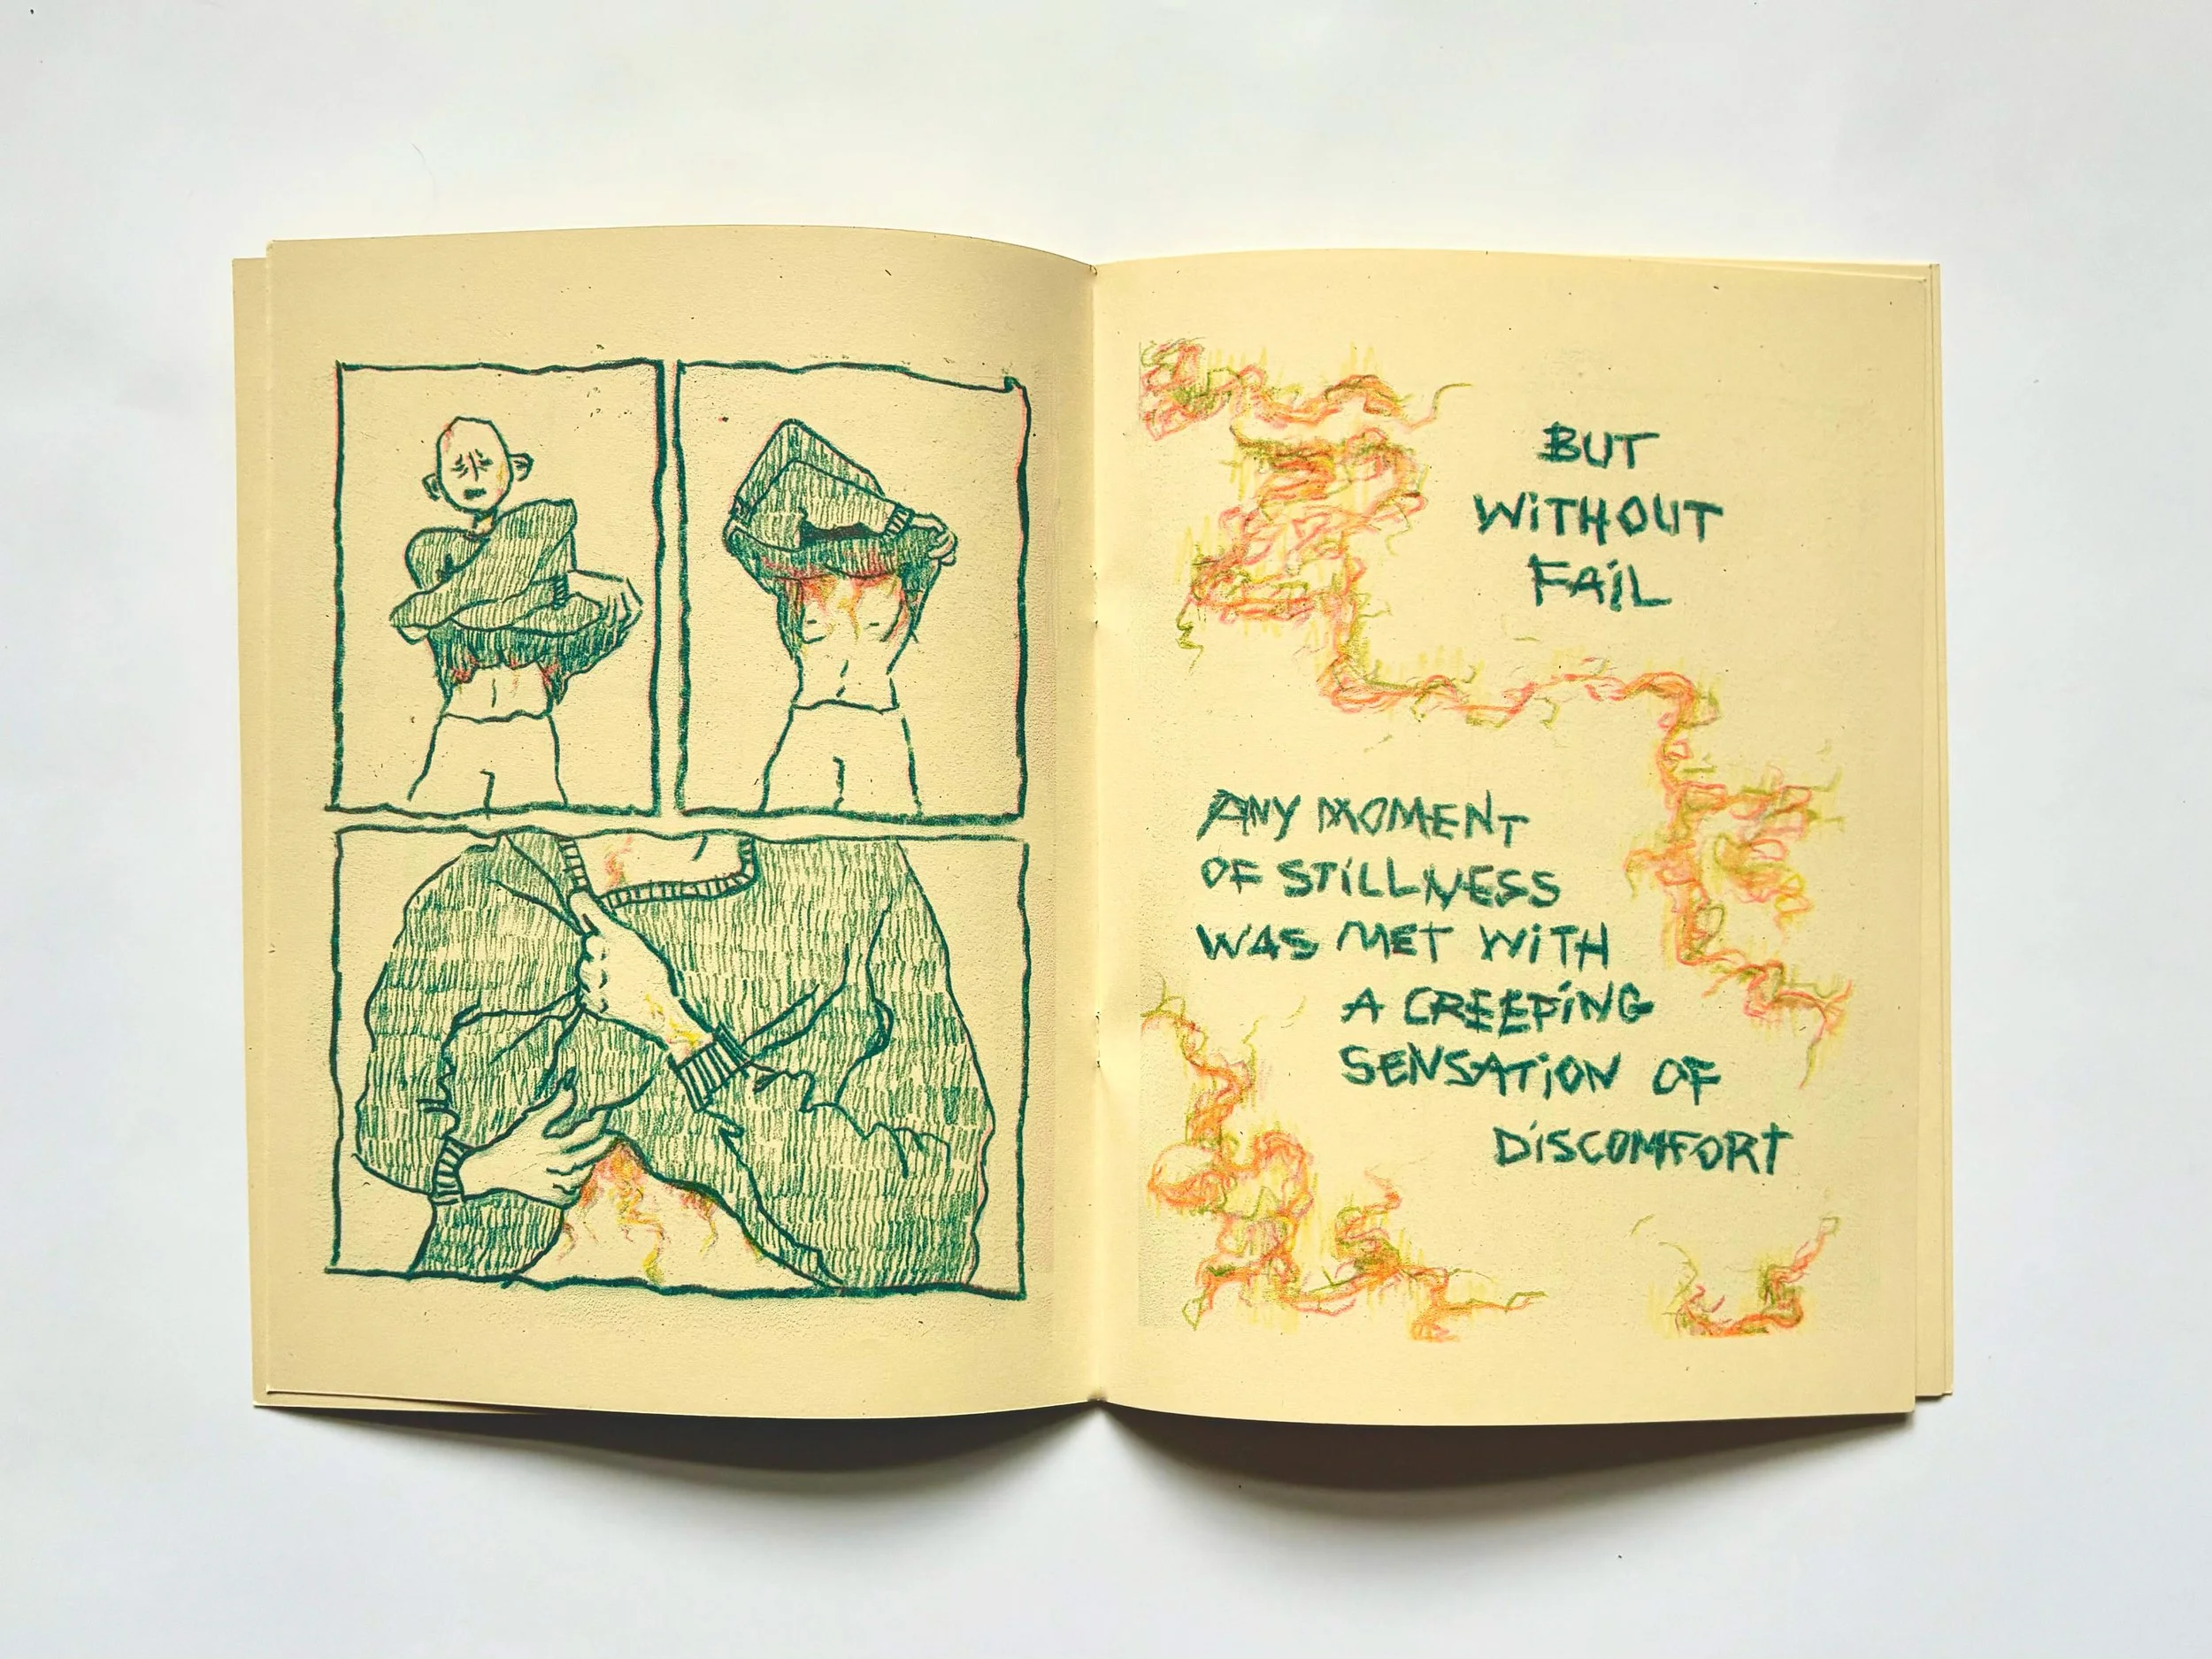 BUT
WiTHOUT
FAiL
ANY MOMENT
OF STiLLNESS
WAS MET WiTH
A CREEPiNG
SENSATiON OF
DiSCOMFORT